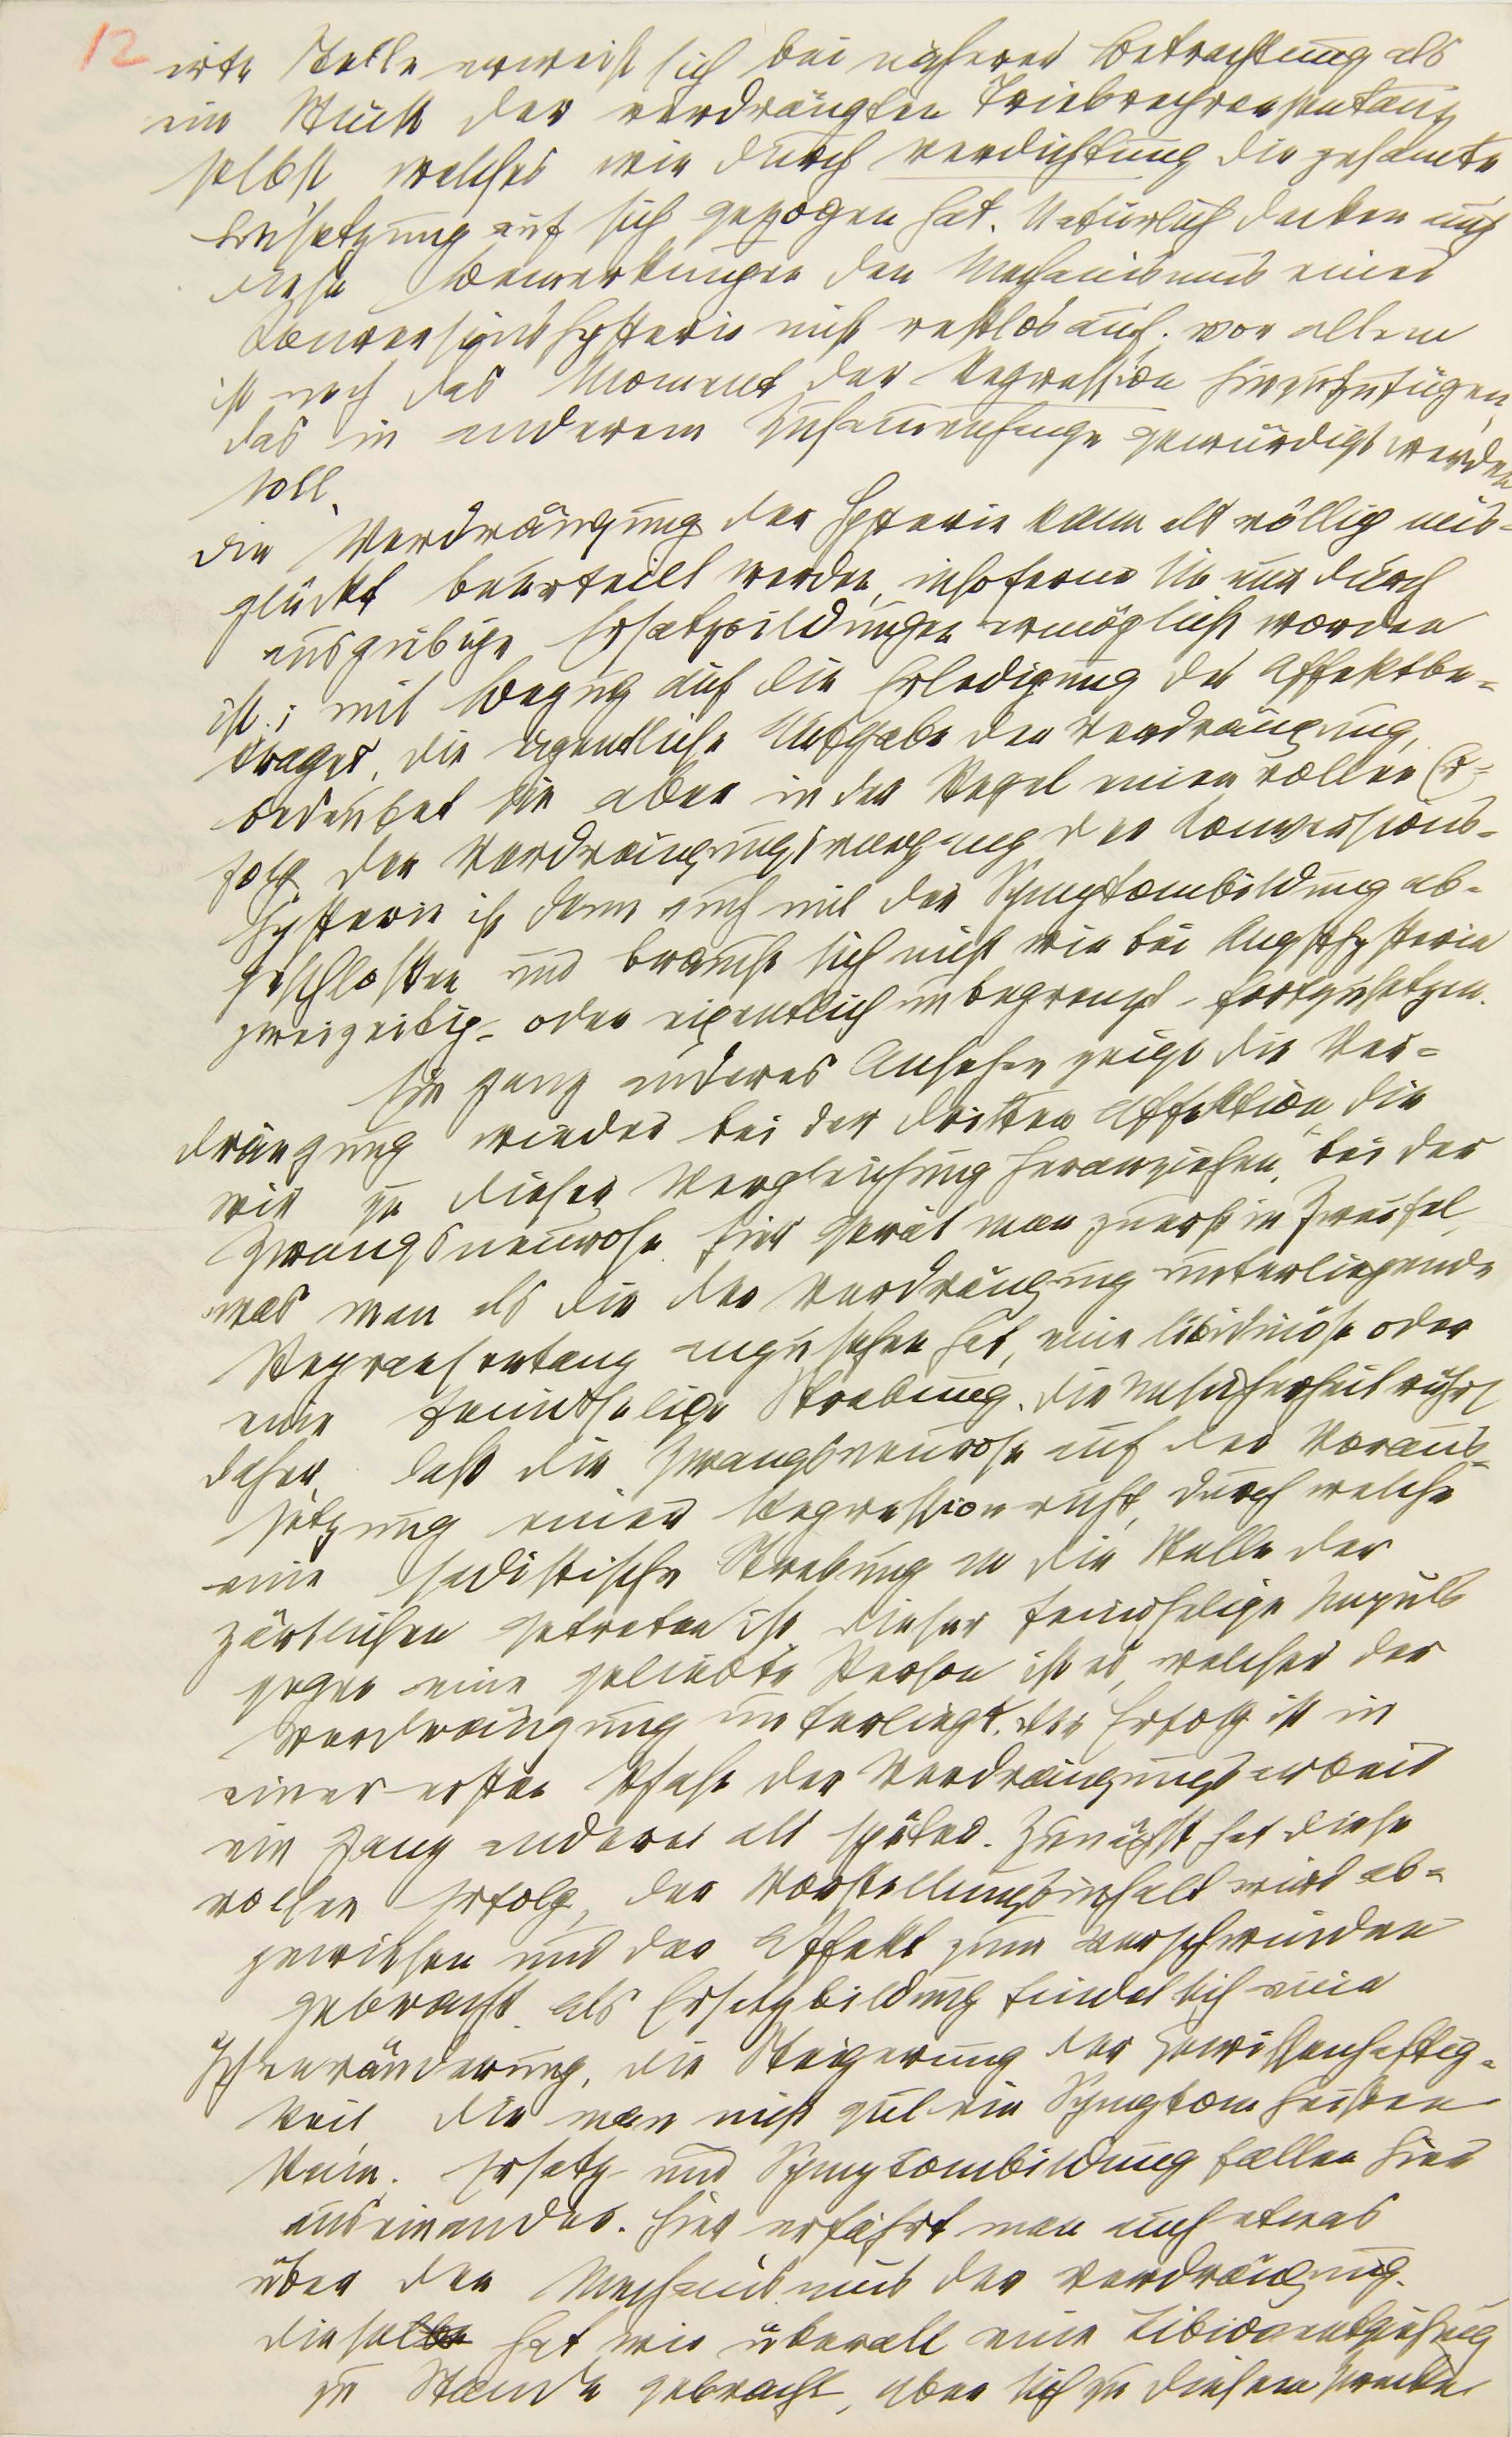 12
irte Stelle erweist sich bei näherer Betrachtung als
ein Stück der verdrängten Triebrepraesentanz
selbst welches wie durch Verdichtung die gesamte
Besetzung auf sich gezogen hat. Natürlich decken auch
diese Bemerkungen den Mechanismus einer
Konversionshysterie nicht restlos auf; vor allem
ist noch das Moment der Regression hinzuzufügen,
das in anderem Zusammenhange gewürdigt werden
soll.
Die Verdrängung der Hysterie kann als völlig mis=
glückt beurteilt werden, insoferne sie nur durch
ausgiebige Ersatzbildungen ermöglicht worden
ist; mit Bezug auf die Erledigung des Affektbe=
trages, die eigentliche Aufgabe der Verdrängung,
bedeutet sie aber in der Regel einen vollen Er=
folg. Der Verdrängungsvorgang der Conversions=
hysterie ist dann auch mit der Symptombildung ab=
geschlossen und braucht sich nicht wie bei Angsthysterie
zweizeitig – oder eigentlich unbegrenzt – fortzusetzen.
Ein ganz anderes Ansehen zeigt die Ver=
drängung wieder bei der dritten Affektion, die
wir zu dieser Vergleichung heranziehen, bei der
Zwangsneurose. Hier gerät man zuerst in Zweifel,
was man als die der Verdrängung unterliegende
Repraesentanz anzusehen hat, eine libidinöse oder
eine feindselige Strebung. Die Unsicherheit rührt
daher, daß die Zwangsneurose auf der Voraus=
setzung einer Regression ruht, durch welche
eine sadistische Strebung an die Stelle der
zärtlichen getreten ist. Dieser feindselige Impuls
gegen eine geliebte Person ist es, welcher der
Verdrängung unterliegt. Der Erfolg ist in
einer ersten Phase der Verdrängungsarbeit
ein ganz anderer als später. Zunächst hat diese
vollen Erfolg, der Vorstellungsinhalt wird ab=
gewiesen und der Affekt zum Verschwinden
gebracht. Als Ersatzbildung findet sich eine
Ichveränderung, die Steigerung der Gewissenhaftig=
keit die man nicht gut ein Symptom heißen
kann. Ersatz- und Symptombildung fallen hier
auseinander. Hier erfährt man auch etwas
über den Mechanismus der Verdrängung.
Dieselbe hat wie überall eine Libidoentziehung
zu Stande gebracht, aber sich zu diesem Zwecke